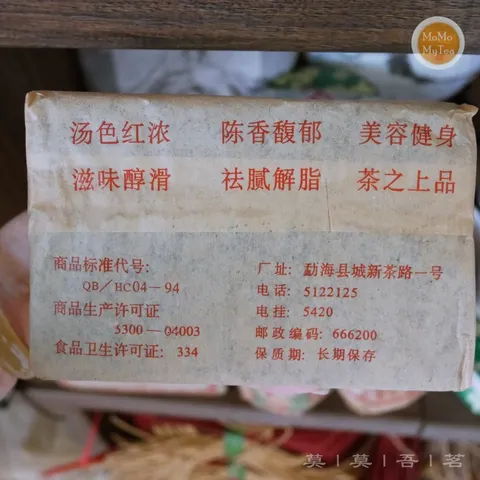 MoMo
MyTea
汤色红浓 陈香馥郁 美容健身
滋味醇滑 祛腻解脂 茶之上品
商品标准代号:
QB/HC04-94
商品生产许可证
5300—04003
食品卫生许可证: 334
厂址: 勐海县城新茶路一号
电话: 5122125
电挂: 5420
邮政编码: 666200
保质期: 长期保存
莫|莫|吾|茗